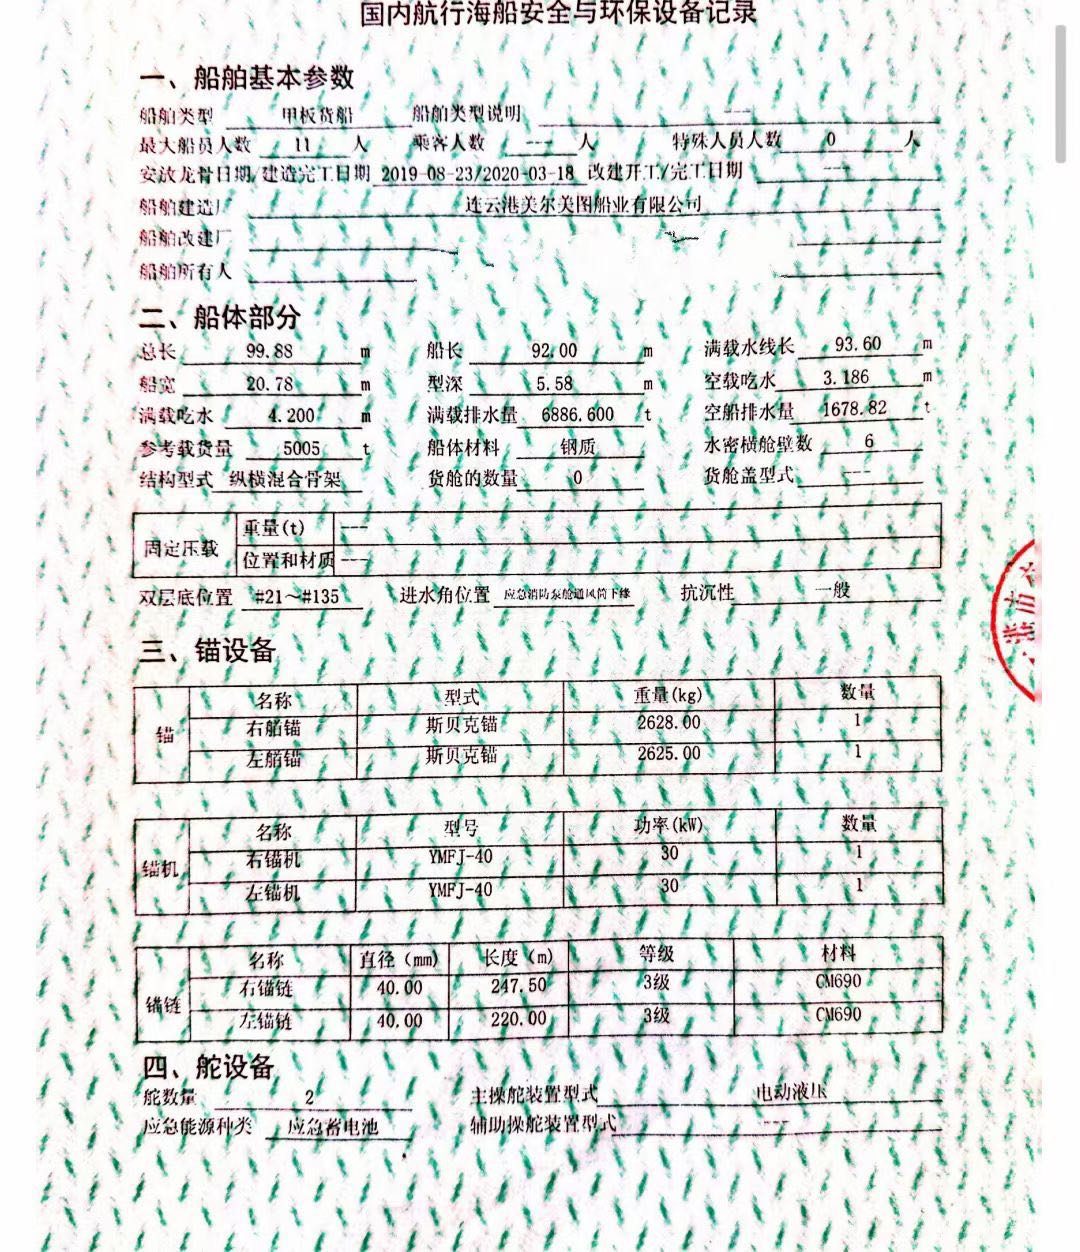 国内航行海船安全与环保设备记录
一、船舶基本参数
船舶类型 甲板货船 船舶类型说明 ---
最大船员人数 11 人 乘客人数 --- 人 特殊人员人数 0 人
安放龙骨日期/建造完工日期 2019-08-23/2020-03-18 改建开工/完工日期 ---
船舶建造厂 连云港美尔美图船业有限公司
船舶改建厂
船舶所有人
二、船体部分
总长 99.88 m 船长 92.00 m 满载水线长 93.60 m
船宽 20.78 m 型深 5.58 m 空载吃水 3.186 m
满载吃水 4.200 m 满载排水量 6886.600 t 空船排水量 1678.82 t
参考载货量 5005 t 船体材料 钢质 水密横舱壁数 6
结构型式 纵横混合骨架 货舱的数量 0 货舱盖型式 ---
固定压载 重量(t) ---
位置和材质 ---
双层底位置 #21~#135 进水角位置 应急消防泵舱通风筒下缘 抗沉性 一般
三、锚设备
锚 名称 型式 重量(kg) 数量
右艏锚 斯贝克锚 2628.00 1
左艏锚 斯贝克锚 2625.00 1
锚机 名称 型号 功率(kW) 数量
右锚机 YMFJ-40 30 1
左锚机 YMFJ-40 30 1
锚链 名称 直径(mm) 长度(m) 等级 材料
右锚链 40.00 247.50 3级 CM690
左锚链 40.00 220.00 3级 CM690
四、舵设备
舵数量 2 主操舵装置型式 电动液压
应急能源种类 应急蓄电池 辅助操舵装置型式 ---